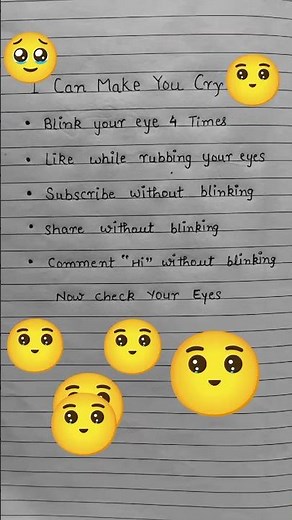 I Can Make You Cry
• Blink your eye 4 Times
• Like while rubbing your eyes
• Subscribe without blinking
• share without blinking
• Comment "Hi" without blinking
Now check Your Eyes